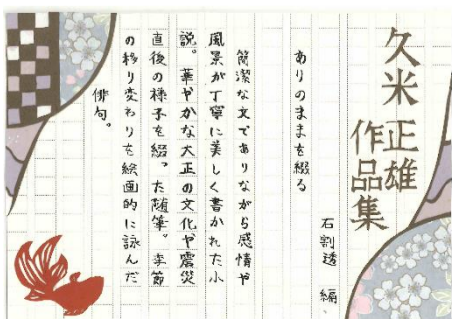 久米正雄
作品集
石割透 編、
ありのままを綴る
簡潔な文でありながら感情や
風景が丁寧に美しく書かれた小
説。華やかな大正の文化や震災
直後の様子を綴った随筆。季節
の移り変わりを絵画的に詠んだ
俳句。